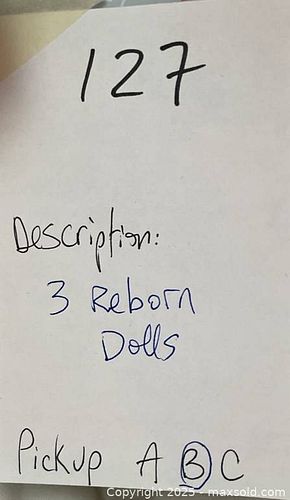 127
Description:
3 Reborn
Dolls
Pickup A B C
Copyright 2025 - maxsold.com